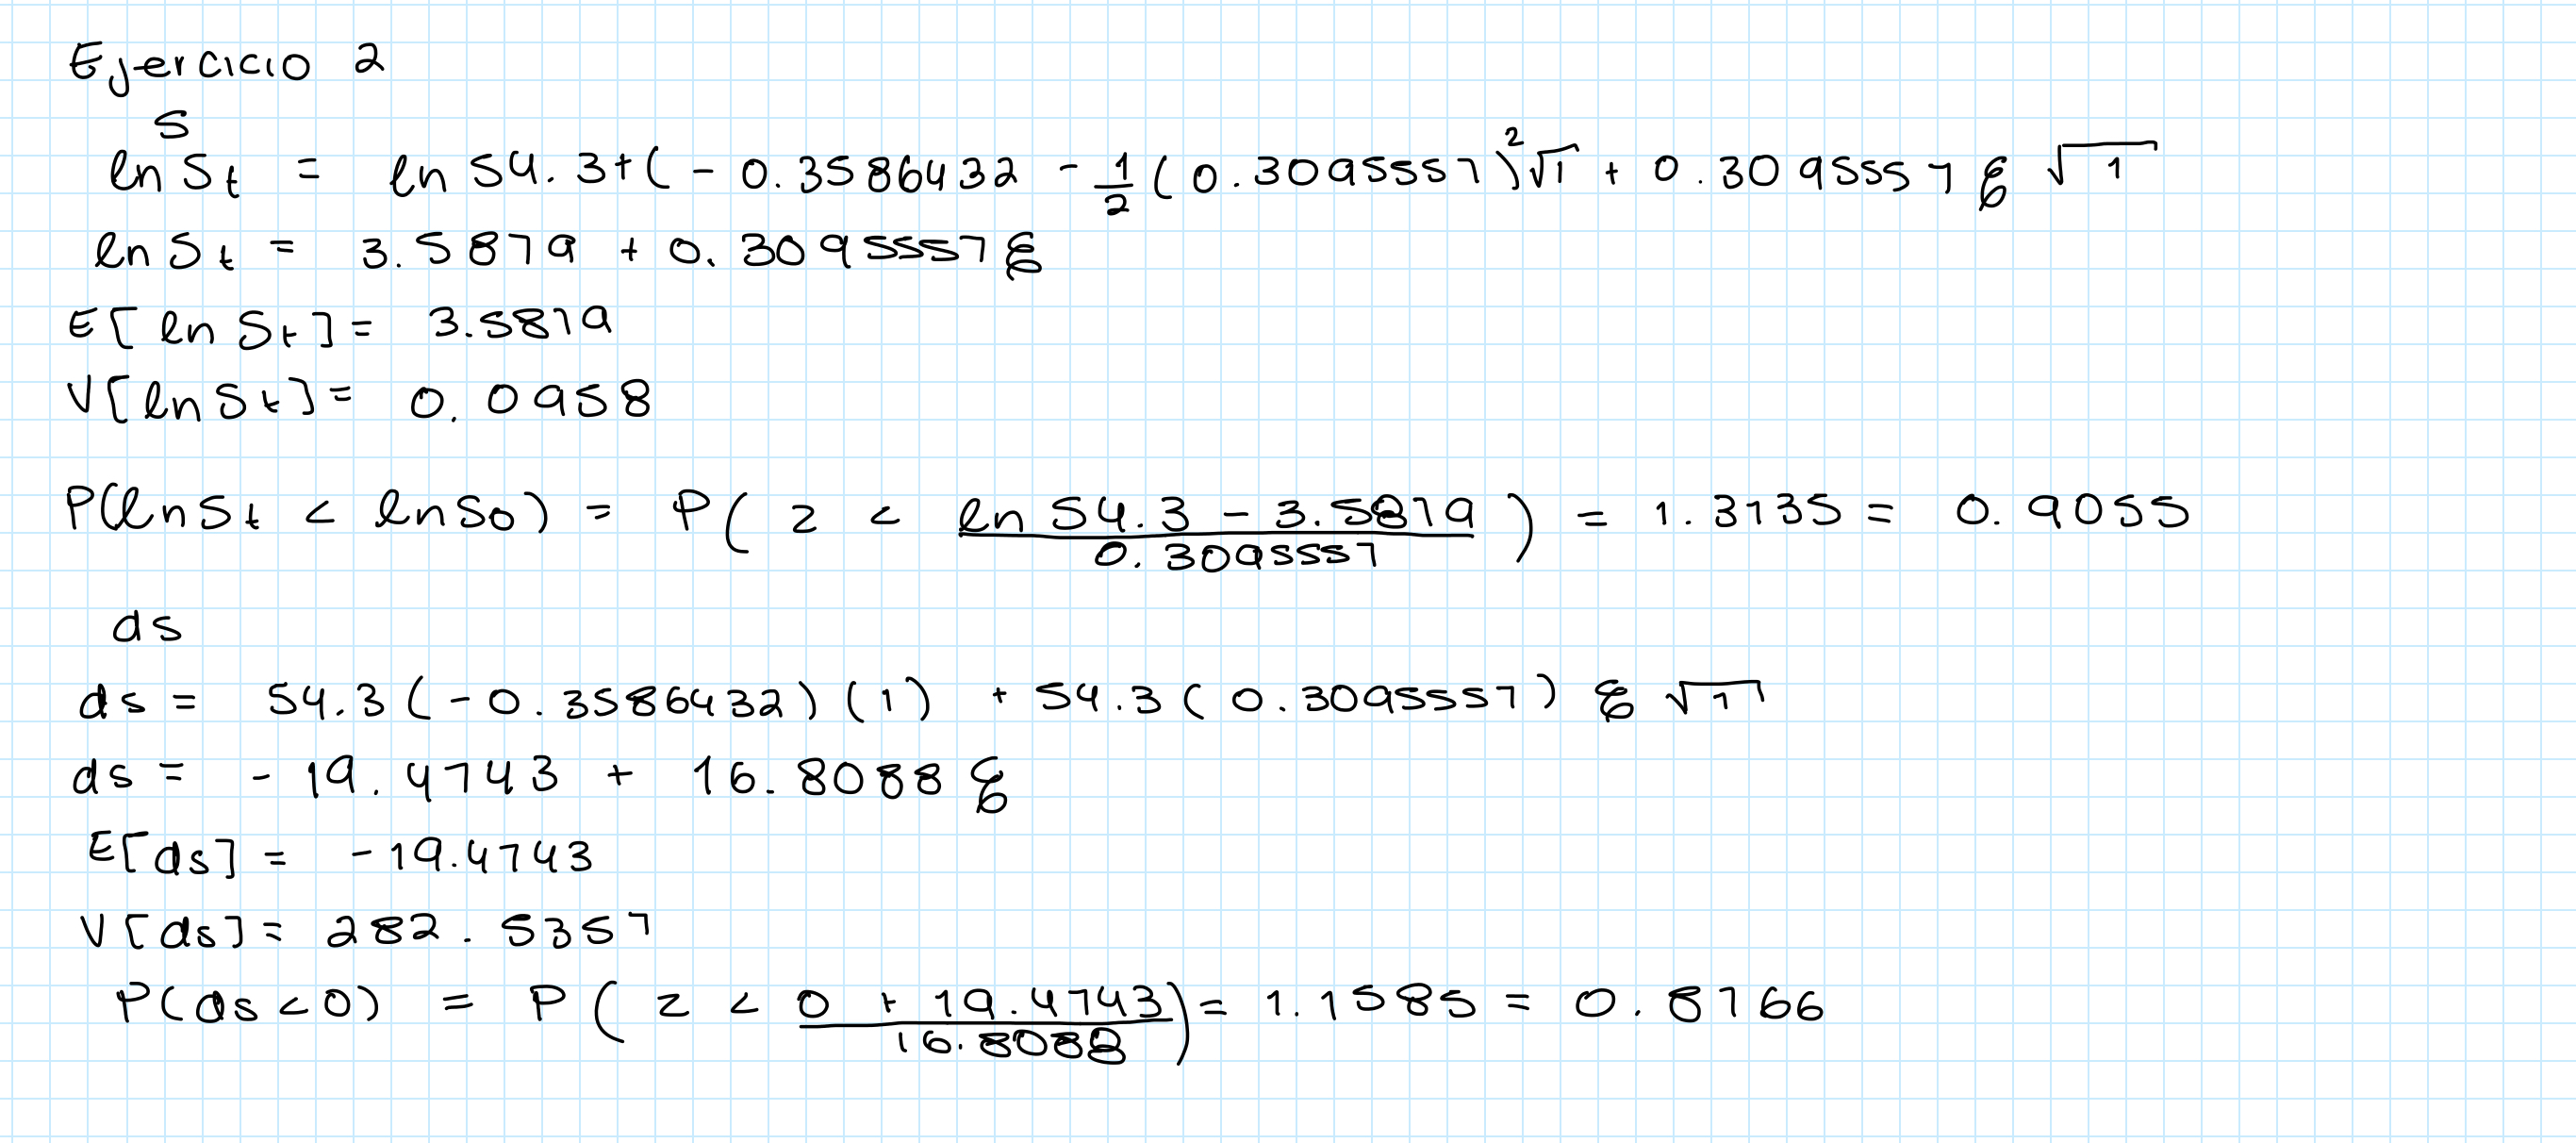 Ejercicio 2
S
ln St = ln 54.3 + ( - 0.3586432 - 1/2 (0.3095557)²√1 + 0.3095557 ξ √1
ln St = 3.5879 + 0.3095557 ξ
E[ ln St ] = 3.5879
V[ ln St ] = 0.0958
P(ln St < ln S0) = P( z < (ln 54.3 - 3.5879)/0.3095557 ) = 1.3135 = 0.9055
ds
ds = 54.3 ( - 0.3586432) (1) + 54.3 ( 0.3095557) ξ √1
ds = - 19.4743 + 16.8088 ξ
E[ds] = - 19.4743
V[ds] = 282.5357
P(ds < 0) = P( z < (0 + 19.4743)/16.8088 ) = 1.1585 = 0.8766